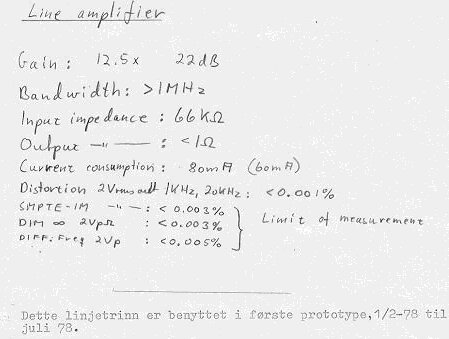 Line amplifier
Gain : 12.5x 22dB
Bandwidth: >1MHz
Input impedance : 66KΩ
Output -"- : <1Ω
Current consumption : 80mA (60mA)
Distortion 2Vrms out 1KHz, 20KHz : <0.001%
SMPTE-IM -"- : <0.003%
DIM ∞ 2Vp : <0.003% Limit of measurement
DIFF. Freq 2Vp : <0.005%
Dette linjetrinn er benyttet i første prototype,1/2-78 til
juli 78.